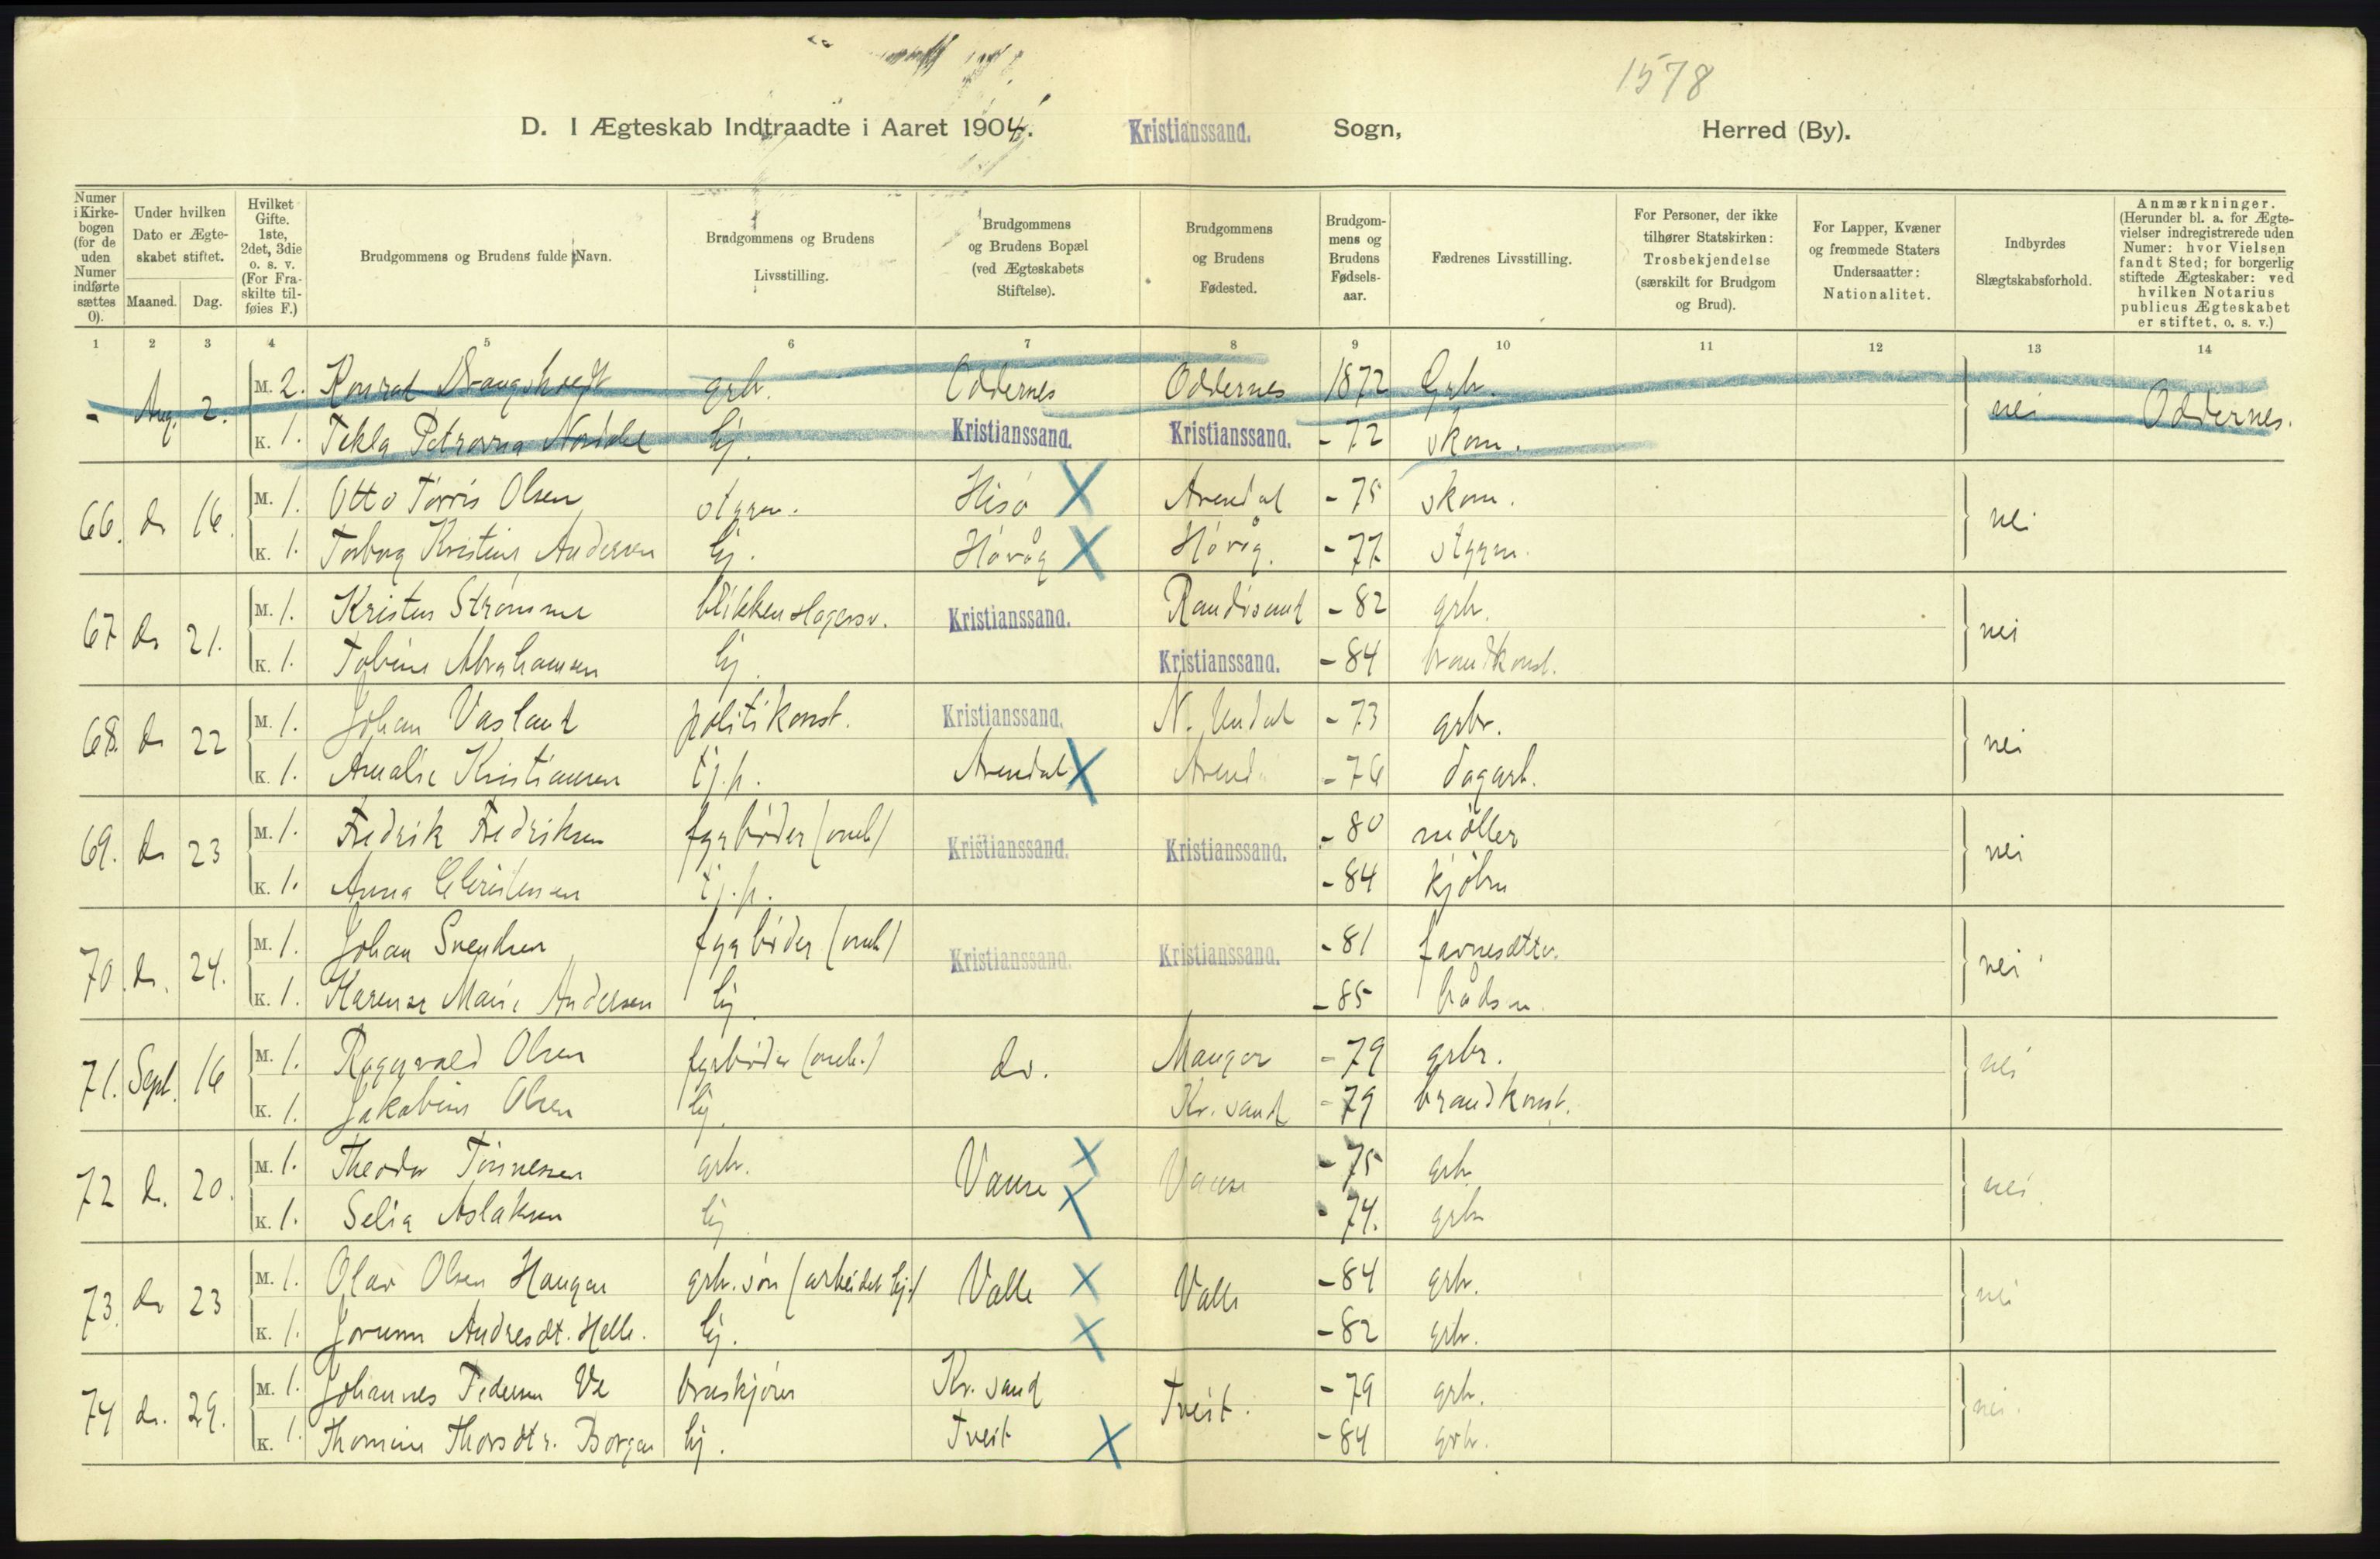 1578
D. I Ægteskab Indtraadte i Aaret 1904. Kristianssand. Sogn, Herred (By).
Numer i Kirkebogen (for de uden Numer indførte sættes 0).
Under hvilken Dato er Ægteskabet stiftet.
Maaned. Dag.
Hvilket Gifte. 1ste, 2det, 3die o. s. v. (For Fraskilte tilføies F.)
Brudgommens og Brudens fulde Navn.
Brudgommens og Brudens Livsstilling.
Brudgommens og Brudens Bopæl (ved Ægteskabets Stiftelse).
Brudgommens og Brudens Fødested.
Brudgommens og Brudens Fødselsaar.
Fædrenes Livsstilling.
For Personer, der ikke tilhører Statskirken: Trosbekjendelse (særskilt for Brudgom og Brud).
For Lapper, Kvæner og fremmede Staters Undersaatter: Nationalitet.
Indbyrdes Slægtskabsforhold.
Anmærkninger. (Herunder bl. a. for Ægtevielser indregistrerede uden Numer: hvor Vielsen fandt Sted; for borgerlig stiftede Ægteskaber: ved hvilken Notarius publicus Ægteskabet er stiftet, o. s. v.)
1 2 3 4 5 6 7 8 9 10 11 12 13 14
- Aug. 2. M. 2. Konrad Drangsholt grb. Oddernes Oddernes 1872 Grb. nei Oddernes.
K. 1. Tekla Petrovna Nordahl hj. Kristianssand. Kristianssand. - 72 skom.
66. do 16. M. 1. Otto Tørris Olsen styrm. Hisø X Arendal - 75 skom. nei
K. 1. Torborg Kristine Andersen hj. Høvåg X Høvåg. - 77 styrm.
67 do 21. M. 1. Kristen Strømme blikkenslagersv. Kristianssand. Randøsund - 82 grb. nei
K. 1. Tobine Abrahamsen hj. Kristianssand. - 84 brandkonst.
68. do 22 M. 1. Johan Vasland politikonst. Kristianssand. N. Undal - 73 grbr. nei
K. 1. Amalie Kristiansen tj.p. Arendal X Arendal - 76 dagarb.
69. do 23 M. 1. Fredrik Fredriksen fyrbøder (omb) Kristianssand. Kristianssand. - 80 møller nei
K. 1. Anna Christensen tj.p. - 84 kjøbm
70. do. 24. M. 1. Johan Svendsen fyrbøder (omb) Kristianssand. Kristianssand. - 81 favnesætter. nei
K. 1. Karense Marie Andersen hj. - 85 bådsm.
71. Sept. 16 M. 1. Ragnvald Olsen fyrbøder (omb.) do. Manger - 79 grbr. nei
K. 1. Jakobine Olsen hj. Kr.sand - 79 brandkonst.
72 do. 20. M. 1. Theodor Tønnesen grb. Vanse X Vanse - 75 grb. nei
K. 1. Selia Aslaksen hj. X - 74. grb.
73. do 23 M. 1. Olav Olsen Haugen grb. søn (arbeidet hj.) Valle X Valle - 84 grb. nei
K. 1. Jorunn Andresdt. Helle. hj. X - 82 grb.
74 do. 29. M. 1. Johannes Pedersen Ve Kr.sand Tveit. - 79 grb. nei.
K. 1. Thomine Thorsdtr. Borgen hj. Tveit X - 84 grb.